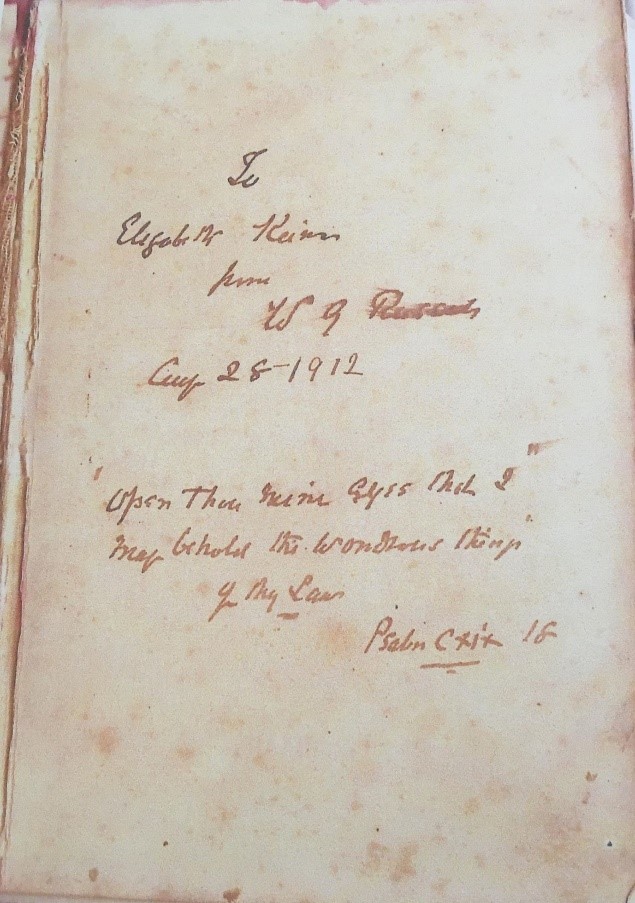 To
Elizabeth
from
W G
Aug 28-1912
"Open Thou mine Eyes that I"
may behold the wondrous things"
of thy Law
Psalm Cxix 18